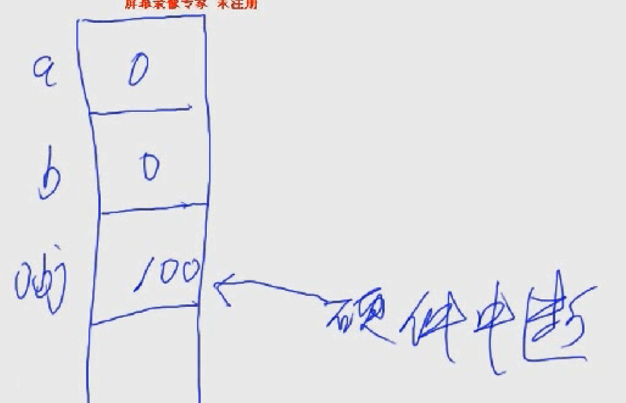 屏幕录像专家 未注册
a 0
b 0
obj 100
硬件中断